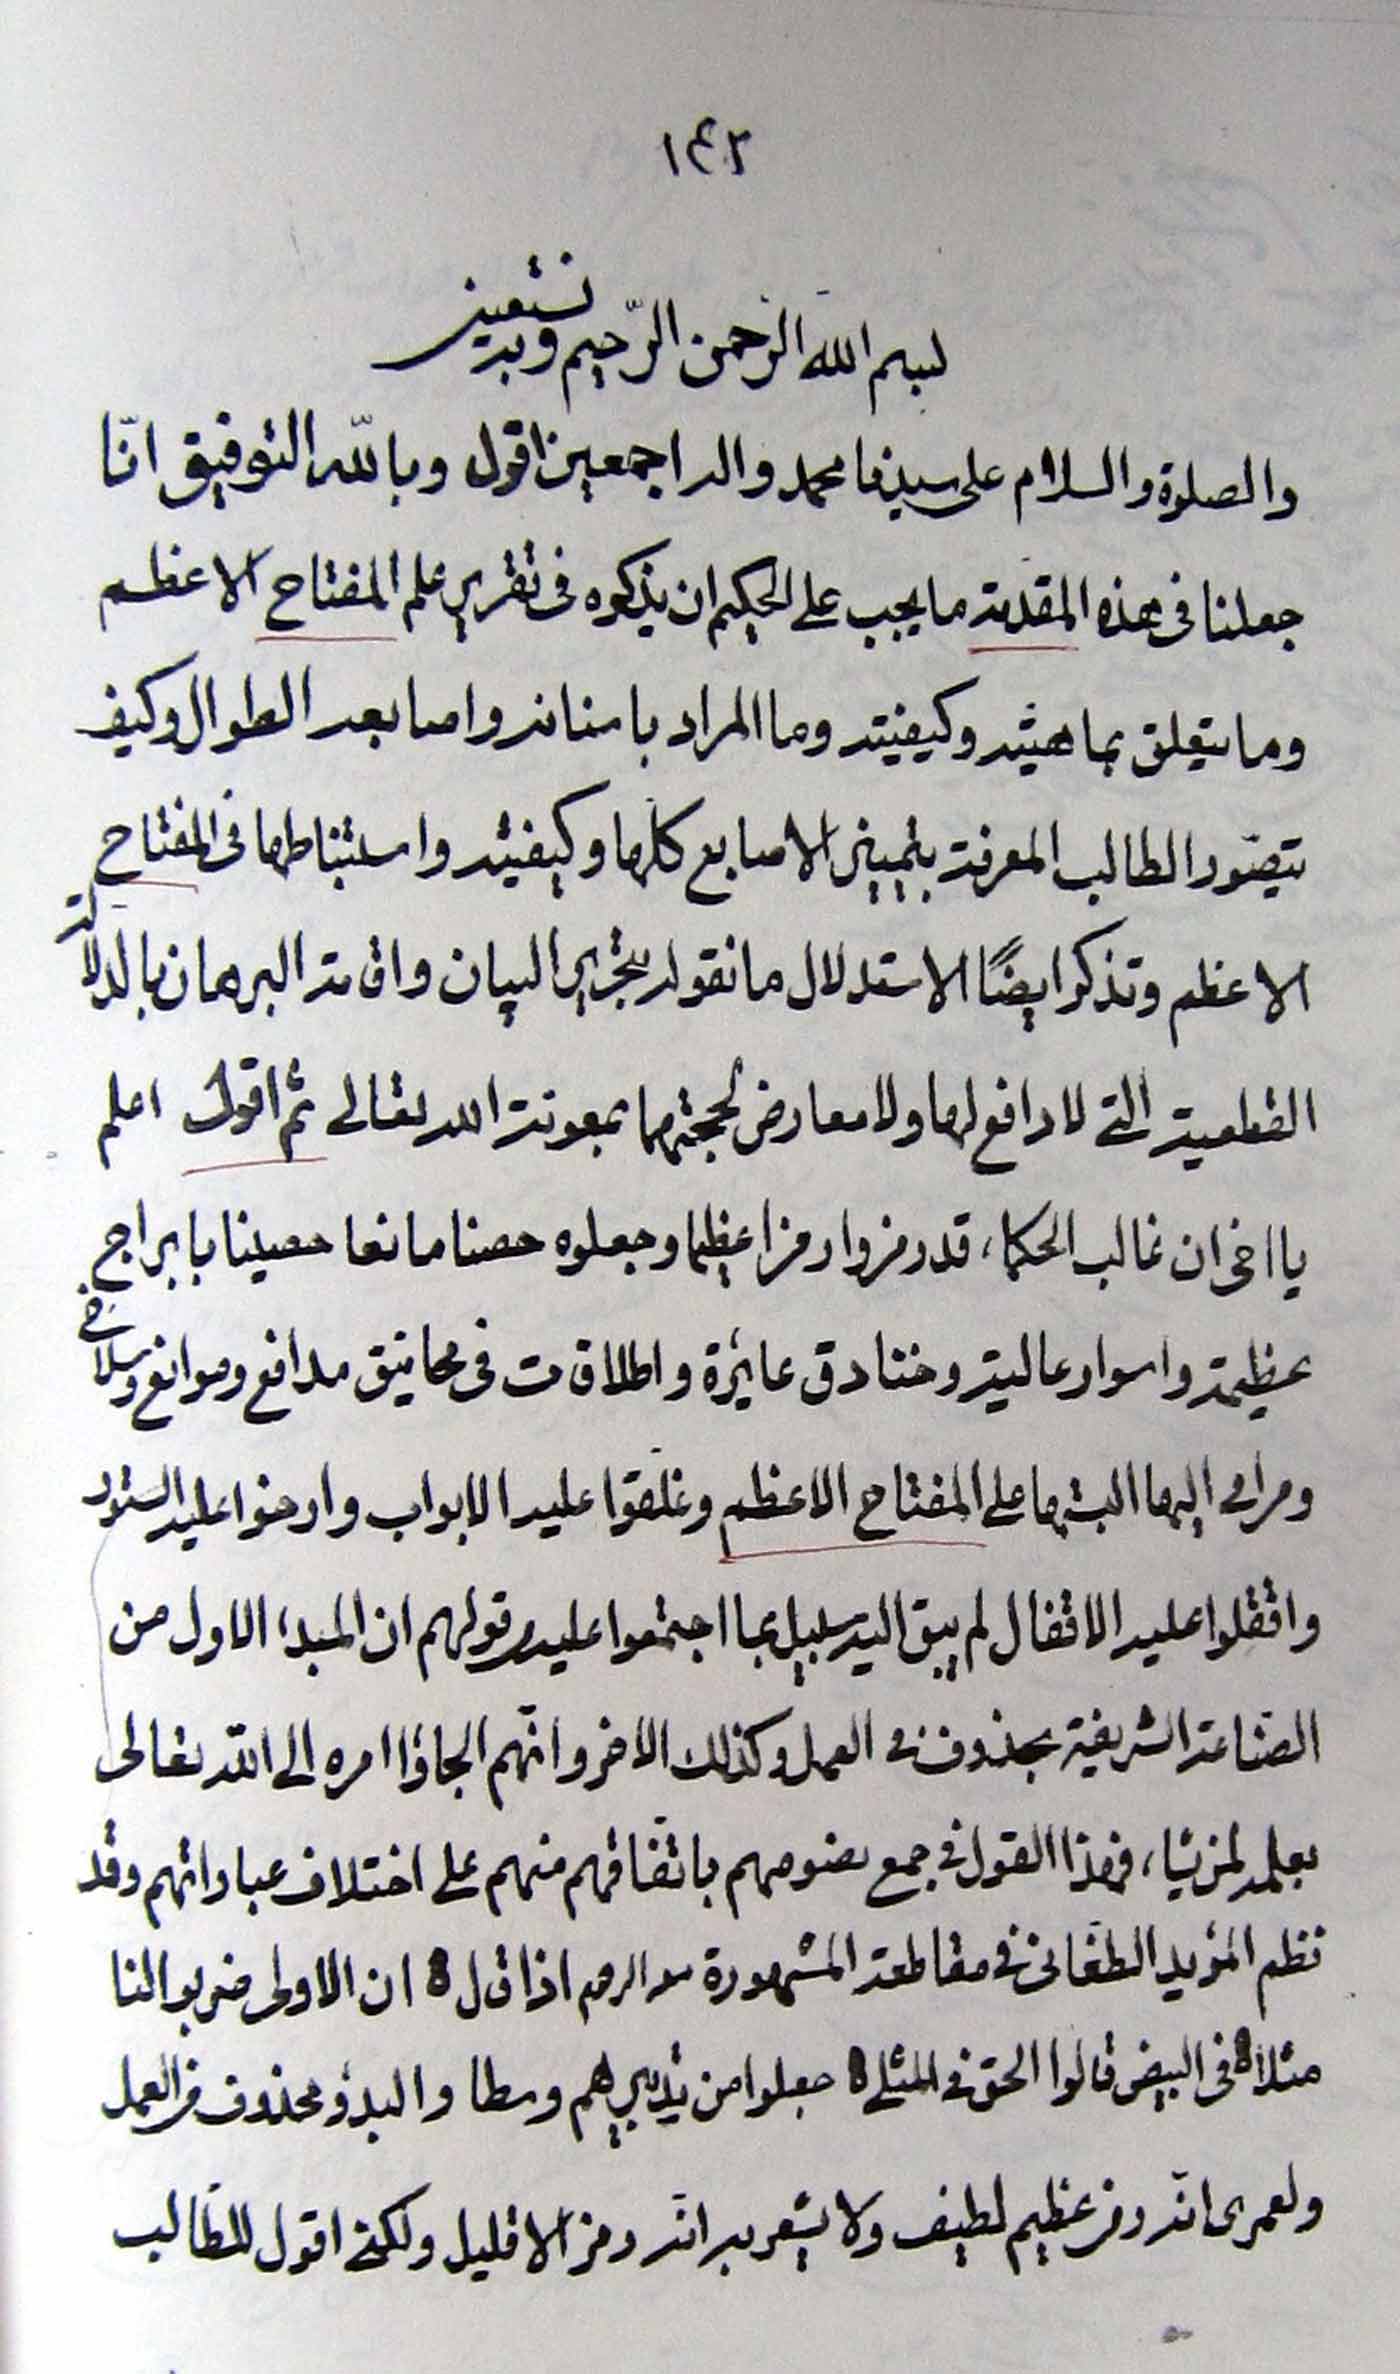 ١٤٢
بسم الله الرحمن الرّحيم وبه نستعين
والصلوة والسلام على سيدنا محمد واله اجمعين اقول وبالله التوفيق انّا
جعلنا فى هذه المقدمة ما يجب على الحكيم ان يذكره فى تقرير علم المفتاح الاعظم
وما يتعلق بماهيته وكيفيته وما المراد باسنانه واصابعه الطوال وكيف
يتصّور الطالب المعرفة بتمييز الاصابع كلها وكيفيته واستنباطها فى المفتاح
الاعظم وتذكر ايضًا الاستدلال ما نقوله بتحرير البيان واقامة البرهان بالدلالة
القطعية التى لا دافع لها ولا معارض لحجتها بمعونة الله تعالى ثم اقول اعلم
يا اخى ان غالب الحكماء قد رمزوا رمزا عظيما وجعلوه حصنا مانعا حصينا بابراج
عظيمة واسوار عالية وخنادق غايرة واطلاقات فى مجانيق مدافع وموانع وسلاح
ومرامى اليها على المفتاح الاعظم وغلقوا عليه الابواب وارخوا عليه الستور
واقفلوا عليه الاقفال لم يبق اليه سبيل بما اجتمعوا عليه قولهم ان المبدء الاول من
الصّناعة الشريفة محذوف فى العمل وكذلك الاخر وانّهم الجاؤا امره الى الله تعالى
يعلمه لمن يشاء فهذا القول فى جمع نصوصهم باتّفاقهم منهم على اختلاف عباراتهم وقد
نظم المؤيد الطغائى فى مقاطعه المشهورة اذا قال ان الاولى ضربوا لنا
مثلاً فى البيض قالوا الحق فى المثل جعلوا من تدبيرهم وسطا والبدؤ محذوف من العمل
ولعمرى انّه رمز عظيم لطيف ولا يشعر به انّه رمز الا قليل ولكنى اقول للطالب